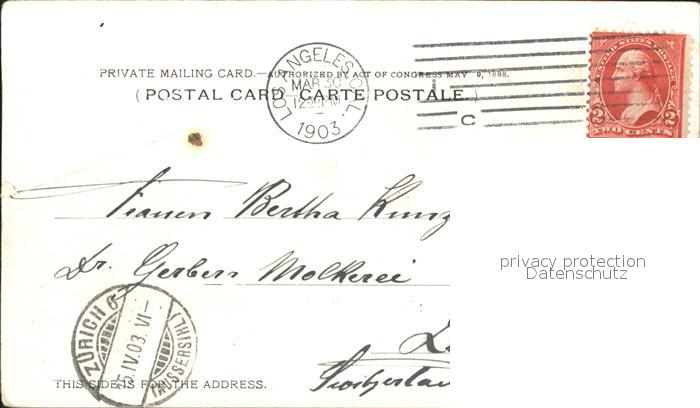 PRIVATE MAILING CARD.—AUTHORIZED BY ACT OF CONGRESS MAY 9, 1898.
(POSTAL CARD—CARTE POSTALE.)
LOS ANGELES, CAL.
MAR 30
1903
C
UNITED STATES POSTAGE
2 2
TWO CENTS
Bertha Kunz
Dr. Gerbers Molkerei
privacy protection
Datenschutz
ZÜRICH
IV.03. VI—
(AUSSERSIHL)
THIS SIDE IS FOR THE ADDRESS.